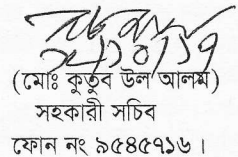 (মোঃ কুতুব উল আলম)
সহকারী সচিব
ফোন নং ৯৫৪৫৭১৬।